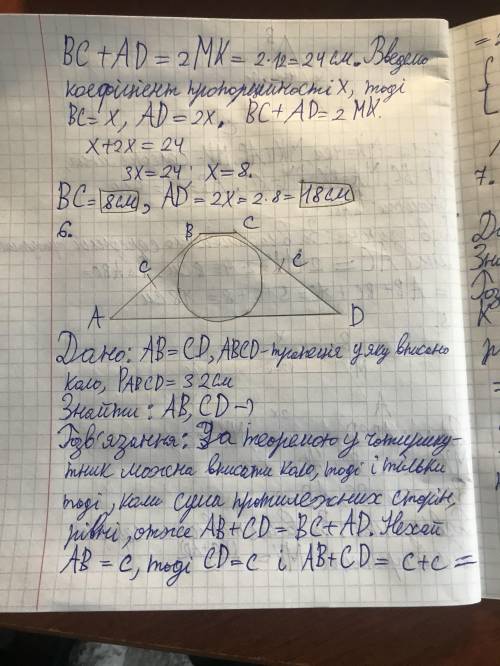 BC + AD = 2MK = 2·12 = 24 см. Введемо
коефіцієнт пропорційності X, тоді
BC = X, AD = 2X. BC + AD = 2 MK.
X + 2X = 24
3X = 24 X = 8.
BC = 8см, AD = 2X = 2·8 = 18см
6.
B C
C C
A D
Дано: AB = CD, ABCD - трапеція у яку вписано
коло, PABCD = 32см
Знайти: AB, CD - ?
Розв'язання: За теоремою у чотирику-
тник можна вписати коло, тоді і тільки
тоді, коли сума протилежних сторін,
рівні, отже AB + CD = BC + AD. Нехай
AB = C, тоді CD = C і AB + CD = C + C =
7.
Да
Зна
Роз